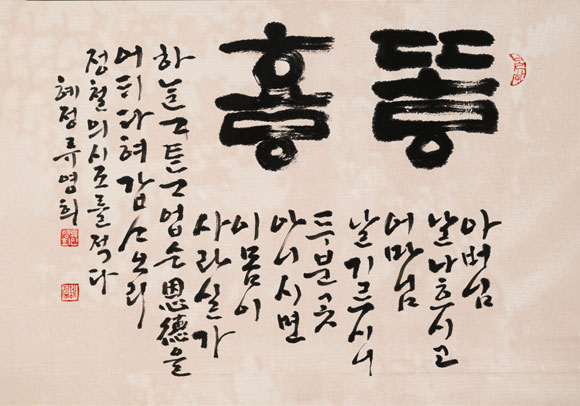 아버님
날 나흐시고
어마님
날 기르시니
두분곳
아니시면
이 몸이
사라실가
하ᄂᆞᆯ ᄀᆞᄐᆞᆫ ᄀᆞ업슨 恩德을
어ᄃᆡ다혀 갑ᄉᆞ오리
정철의 시조를 적다
혜정 류영희